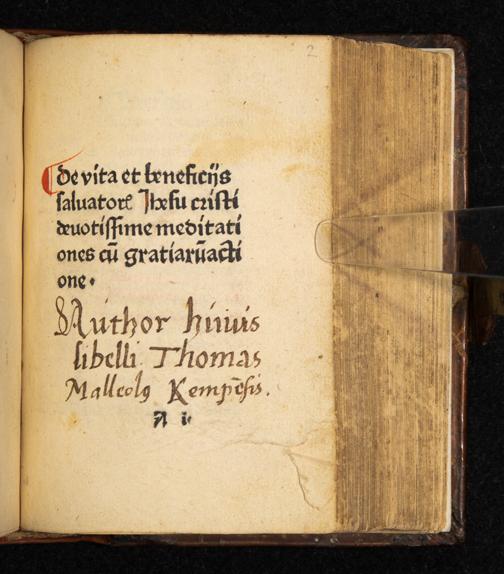 2
De vita et beneficijs
saluatorꝭ Jhesu cristi
deuotissime meditati
ones cū gratiarūacti
one.
Author huius
libelli Thomas
Malleolꝯ Kempēsis.
A i